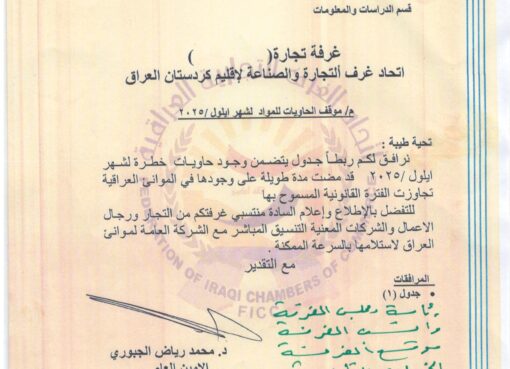 قسم الدراسات والمعلومات
غرفة تجارة( )
اتحاد غرف ألتجارة والصناعة لإقليم كردستان العراق
م/ موقف الحاويات للمواد لشهر ايلول /٢٠٢٥
تحية طيبة :
نرافق لكم ربطاً جدول يتضمن وجود حاويات خطرة لشهر
ايلول /٢٠٢٥ قد مضت مدة طويلة على وجودها في الموانئ العراقية
تجاوزت الفترة القانونية المسموح بها
للتفضل بالإطلاع وإعلام السادة منتسبي غرفتكم من التجار ورجال
الاعمال والشركات المعنية التنسيق المباشر مع الشركة العامة لموانئ
العراق لاستلامها بالسرعة الممكنة .
مع التقدير
المرافقات
• جدول (١)
OF IRAQI CHAMBERS OF COMM
FICC
د. محمد رياض الجبوري
الامين العام